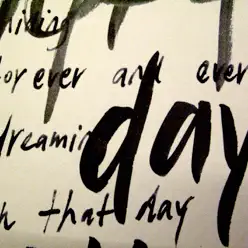 for ever and ever
dreamin
day
h that day